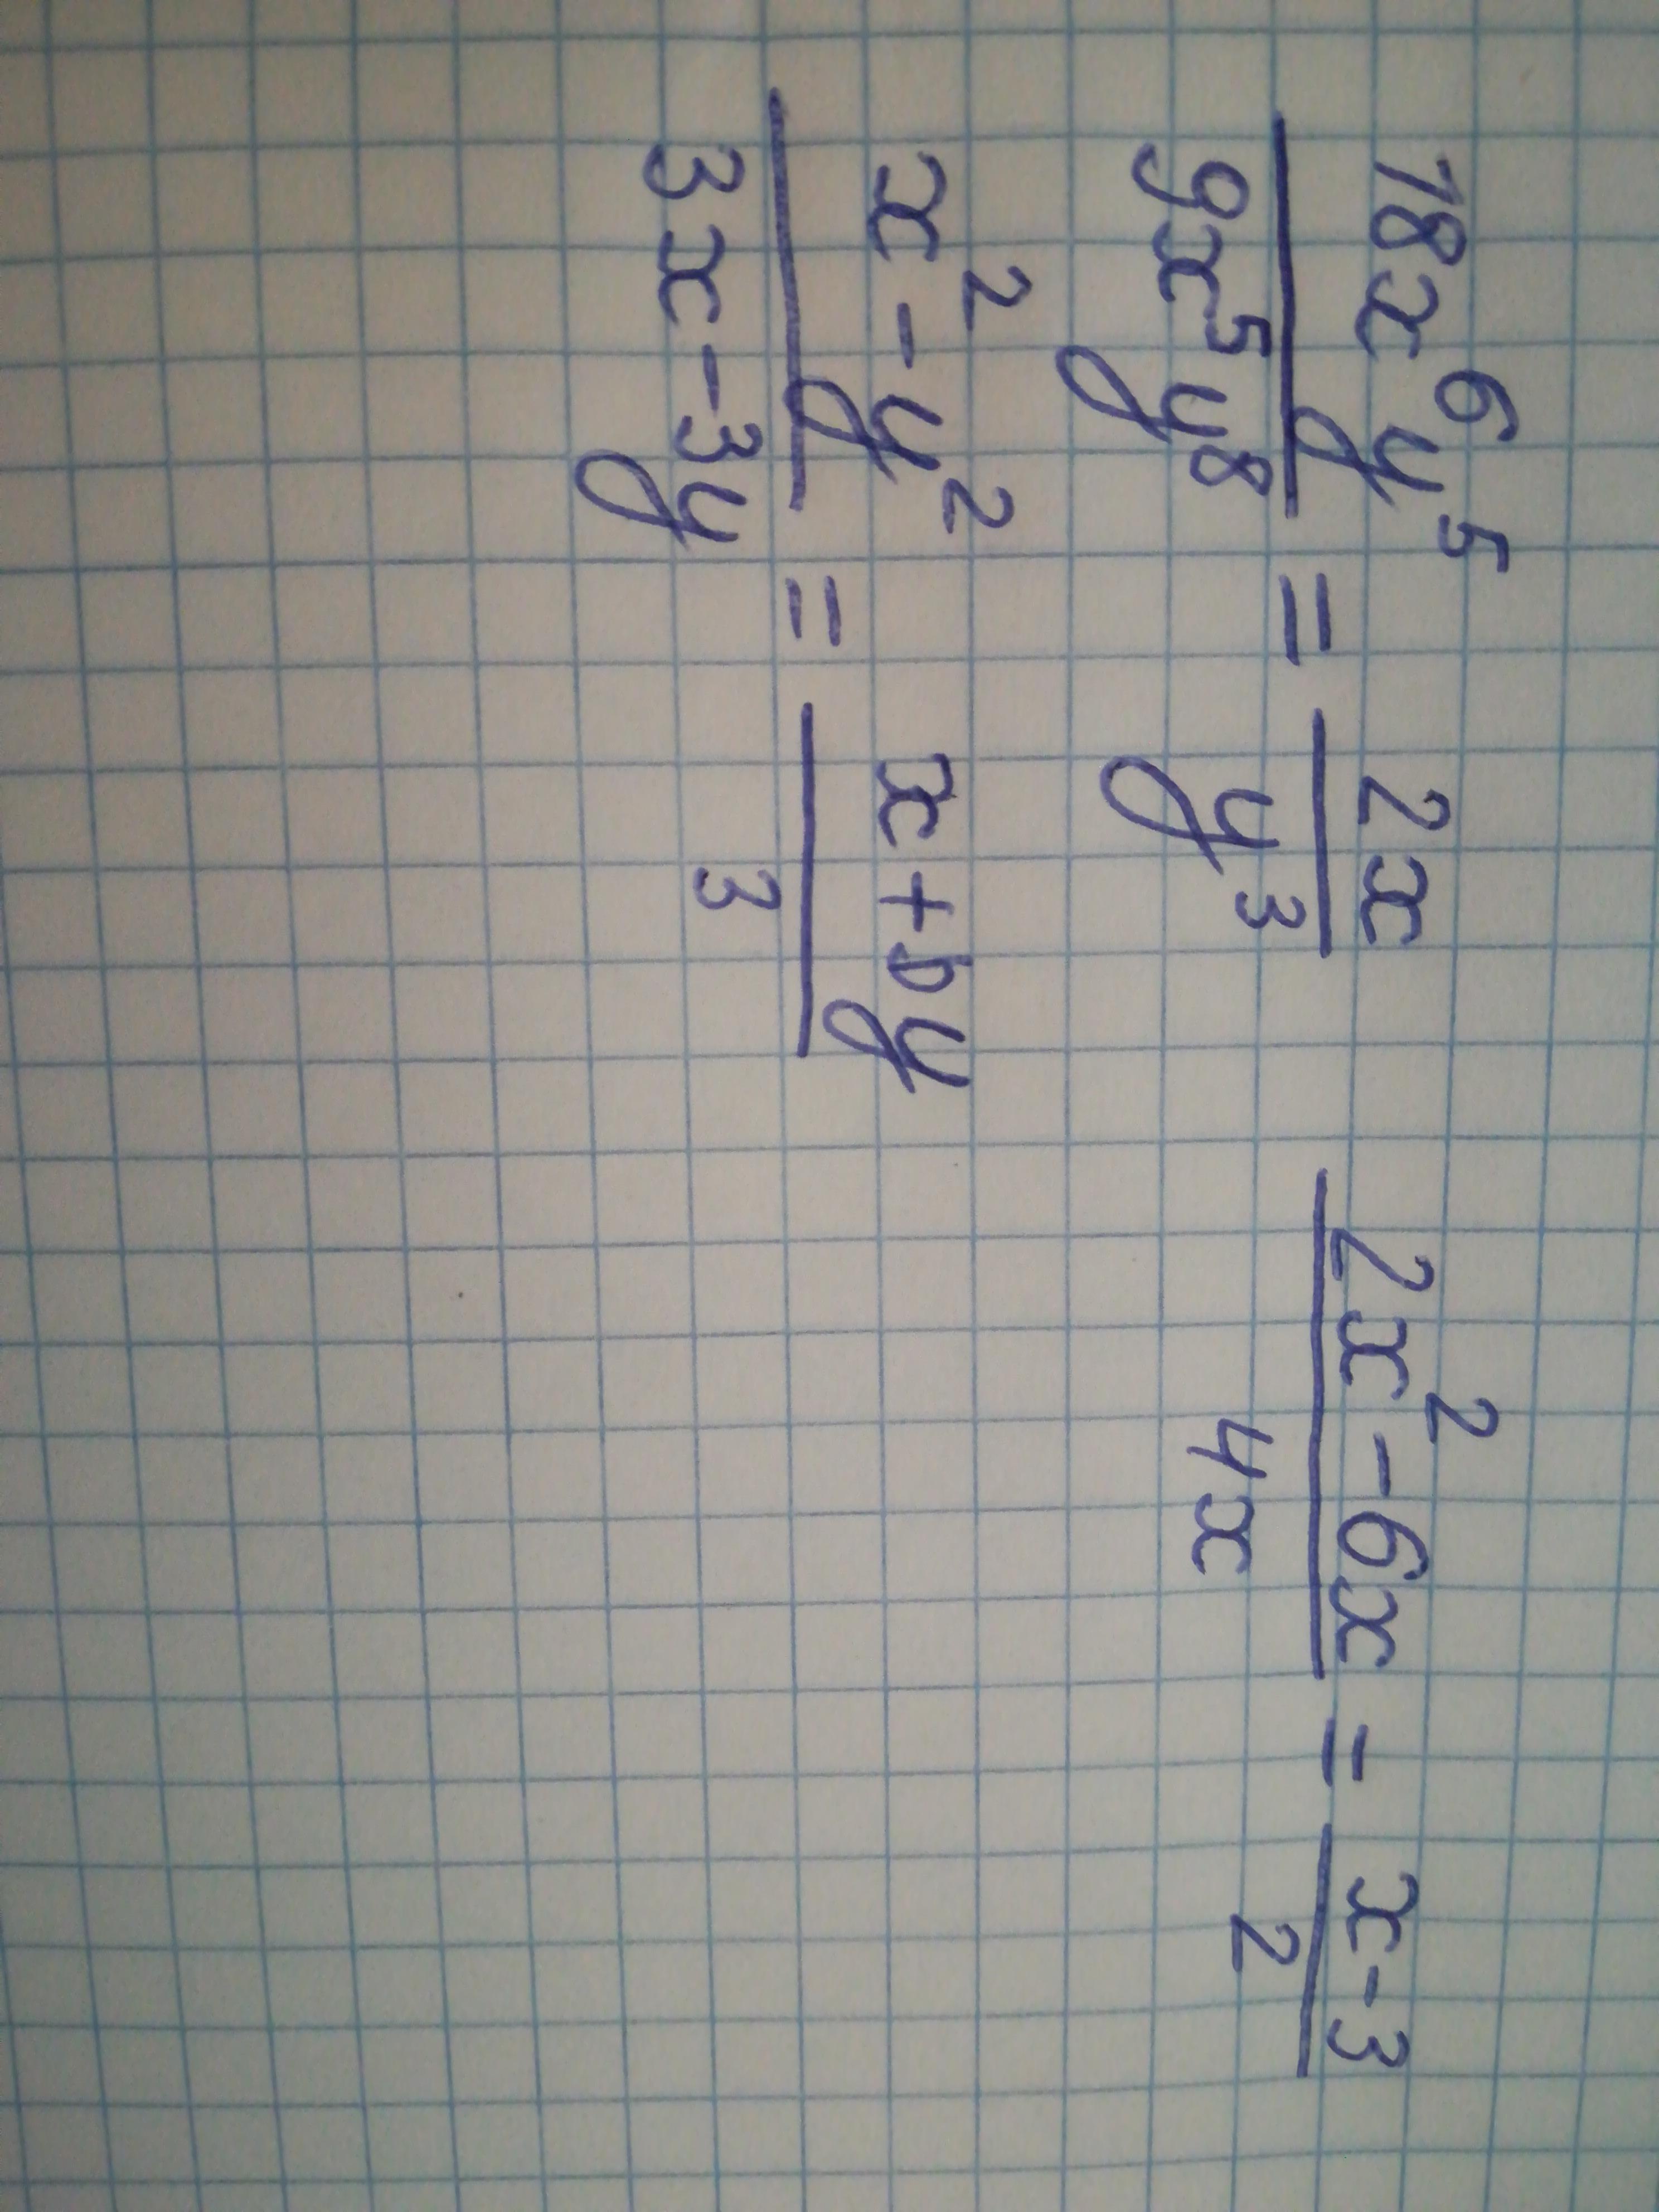 18x⁶y⁵/9x⁵y⁸ = 2x/y³   2x²-6x/4x = x-3/2
x²-y²/3x-3y = x+by/3